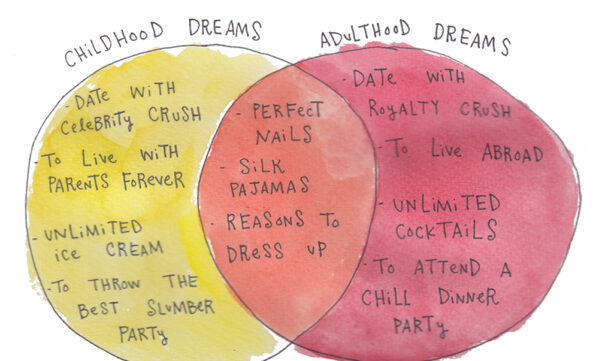 CHiLDHOOD DREAMS
ADulTHooD DREAMS
- DATE WiTH
CeleBRiTY CRUSH
- To Live WiTH
PARENTS FoREVER
- UNLiMiTED
ice CREAM
- To THROW THE
BeST SLuMBER
PARTy
- PERFecT
NAiLS
- SiLK
PAJAMAS
- REASONS To
DReSS uP
- DATE WiTH
RoyALTY CRUSH
- To Live ABROAD
- UNLiMiTED
CoCKTAiLS
- To ATTEND A
CHiLL DiNNeR
PARTy